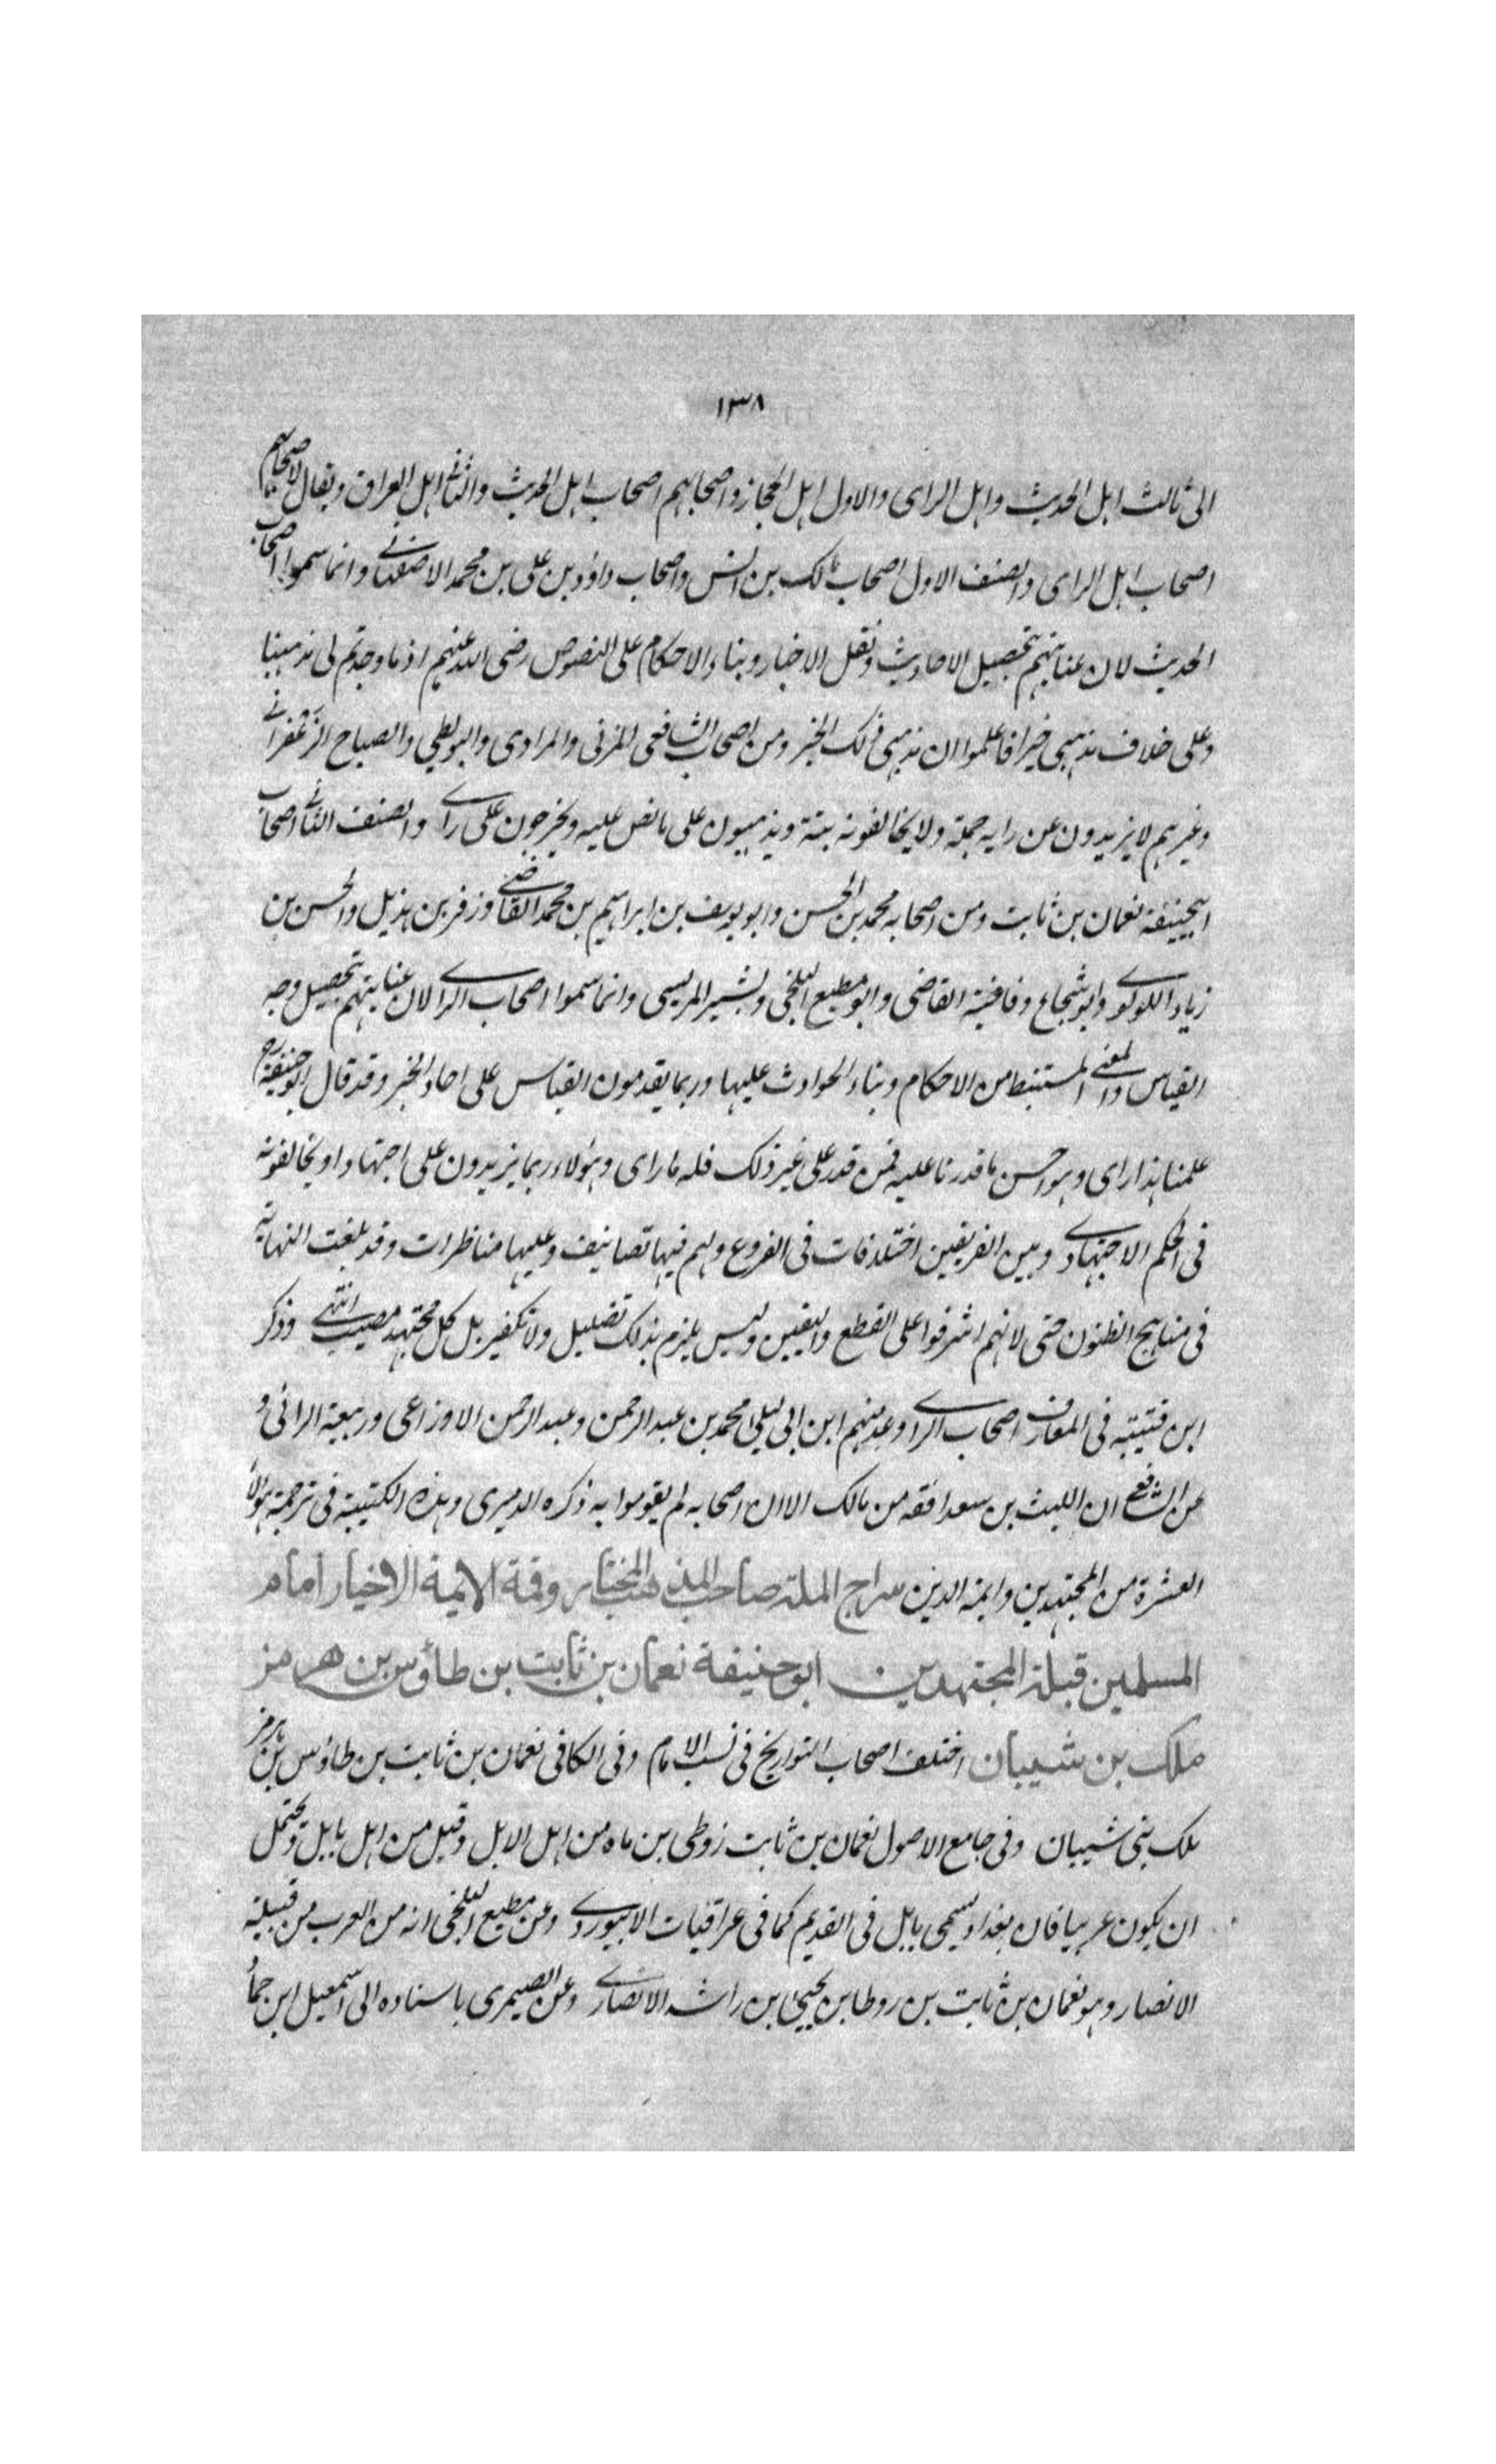 ١٣٨
الى ثالث اهل الحديث واهل الراى والاول اهل الحجاز واصحابهم اصحاب اهل الحديث والثانى اهل العراق ويقال لاصحابهم
اصحاب اهل الراى والصنف الاول اصحاب مالك بن انس واصحاب داؤد بن على بن محمد الاصفهانى وانما سموا اصحاب
الحديث لان عنايتهم بتحصيل الاحاديث ونقل الاخبار وبناء الاحكام على النصوص رضى الله عنهم اذ ما وجدتم لى مذهبنا
وعلى خلاف مذهبى خبرا فاعلموا ان مذهبى ذلك الخبر ومن اصحاب الشافعى المزنى والمرادى والبويطى والصباح الزعفرانى
وغيرهم لا يزيدون عن رايه جملة ولا يخالفونه بتة ويذهبون على ما نص عليه ويخرجون على راى والصنف الثانى اصحاب
ابيحنيفة نعمان بن ثابت ومن اصحابه محمد بن الحسن وابو يوسف بن ابراهيم بن محمد القاضى وزفر بن هذيل والحسن بن
زياد اللولوى وابو شجاع وفاقية القاضى وابو مطيع البلخى وبشير المريسى وانما سموا اصحاب الراى لان عنايتهم بتحصيل وجه
القياس والمعنى المستنبط من الاحكام وبناء الحوادث عليها وربما يقدمون القياس على احاد الخبر وقد قال ابو حنيفة رح
علمنا هذا راى وهو احسن ما قدرنا عليه فمن قدر على غير ذلك فله ما راى وهولاء ربما يزيدون على اجتهاد او يخالفونه
فى الحكم الاجتهادى وبين الفريقين اختلافات فى الفروع ولهم فيها تصانيف وعليها مناظرات وقد بلغت النهاية
فى مناهج الظنون حتى لانهم اشرفوا على القطع واليقين وليس يلزم بذلك تضليل ولا تكفير بل كل مجتهد مصيب انتهى وذكر
ابن قتيبة فى المعارف اصحاب الراى وعد منهم ابن ابى ليلى محمد بن عبد الرحمن وعبد الرحمن الاوزاعى وربيعة الرائى و
عن الشافعى ان الليث بن سعد افقه من مالك الا ان اصحابه لم يقوموا به ذكره الدميرى وهذه الكتيبة فى ترجمة هولاء
العشرة من المجتهدين وايمة الدين سراج الملة صاحب المذهب المختار وقمة الايمة الاخيار امام
المسلمين قبلة المجتهدين ابو حنيفة نعمان بن ثابت بن طاؤس بن هرمز
ملك بن شيبان اختلف اصحاب التواريخ فى نسب الامام وفى الكافى نعمان بن ثابت بن طاؤس بن هرمز
ملك بنى شيبان وفى جامع الاصول نعمان بن ثابت زوطى بن ماه من اهل الابل وقيل من اهل بابل ويحتمل
ان يكون عربيا فان بغداد يسمى بابل فى القديم كما فى عراقيات الابيوردى وعن مطيع البلخى انه من العرب من قبيلة
الانصار وهو نعمان بن ثابت بن روطا بن يحيى بن راشد الانصارى وعن الصيمرى باسناده الى اسمعيل ابن حماد